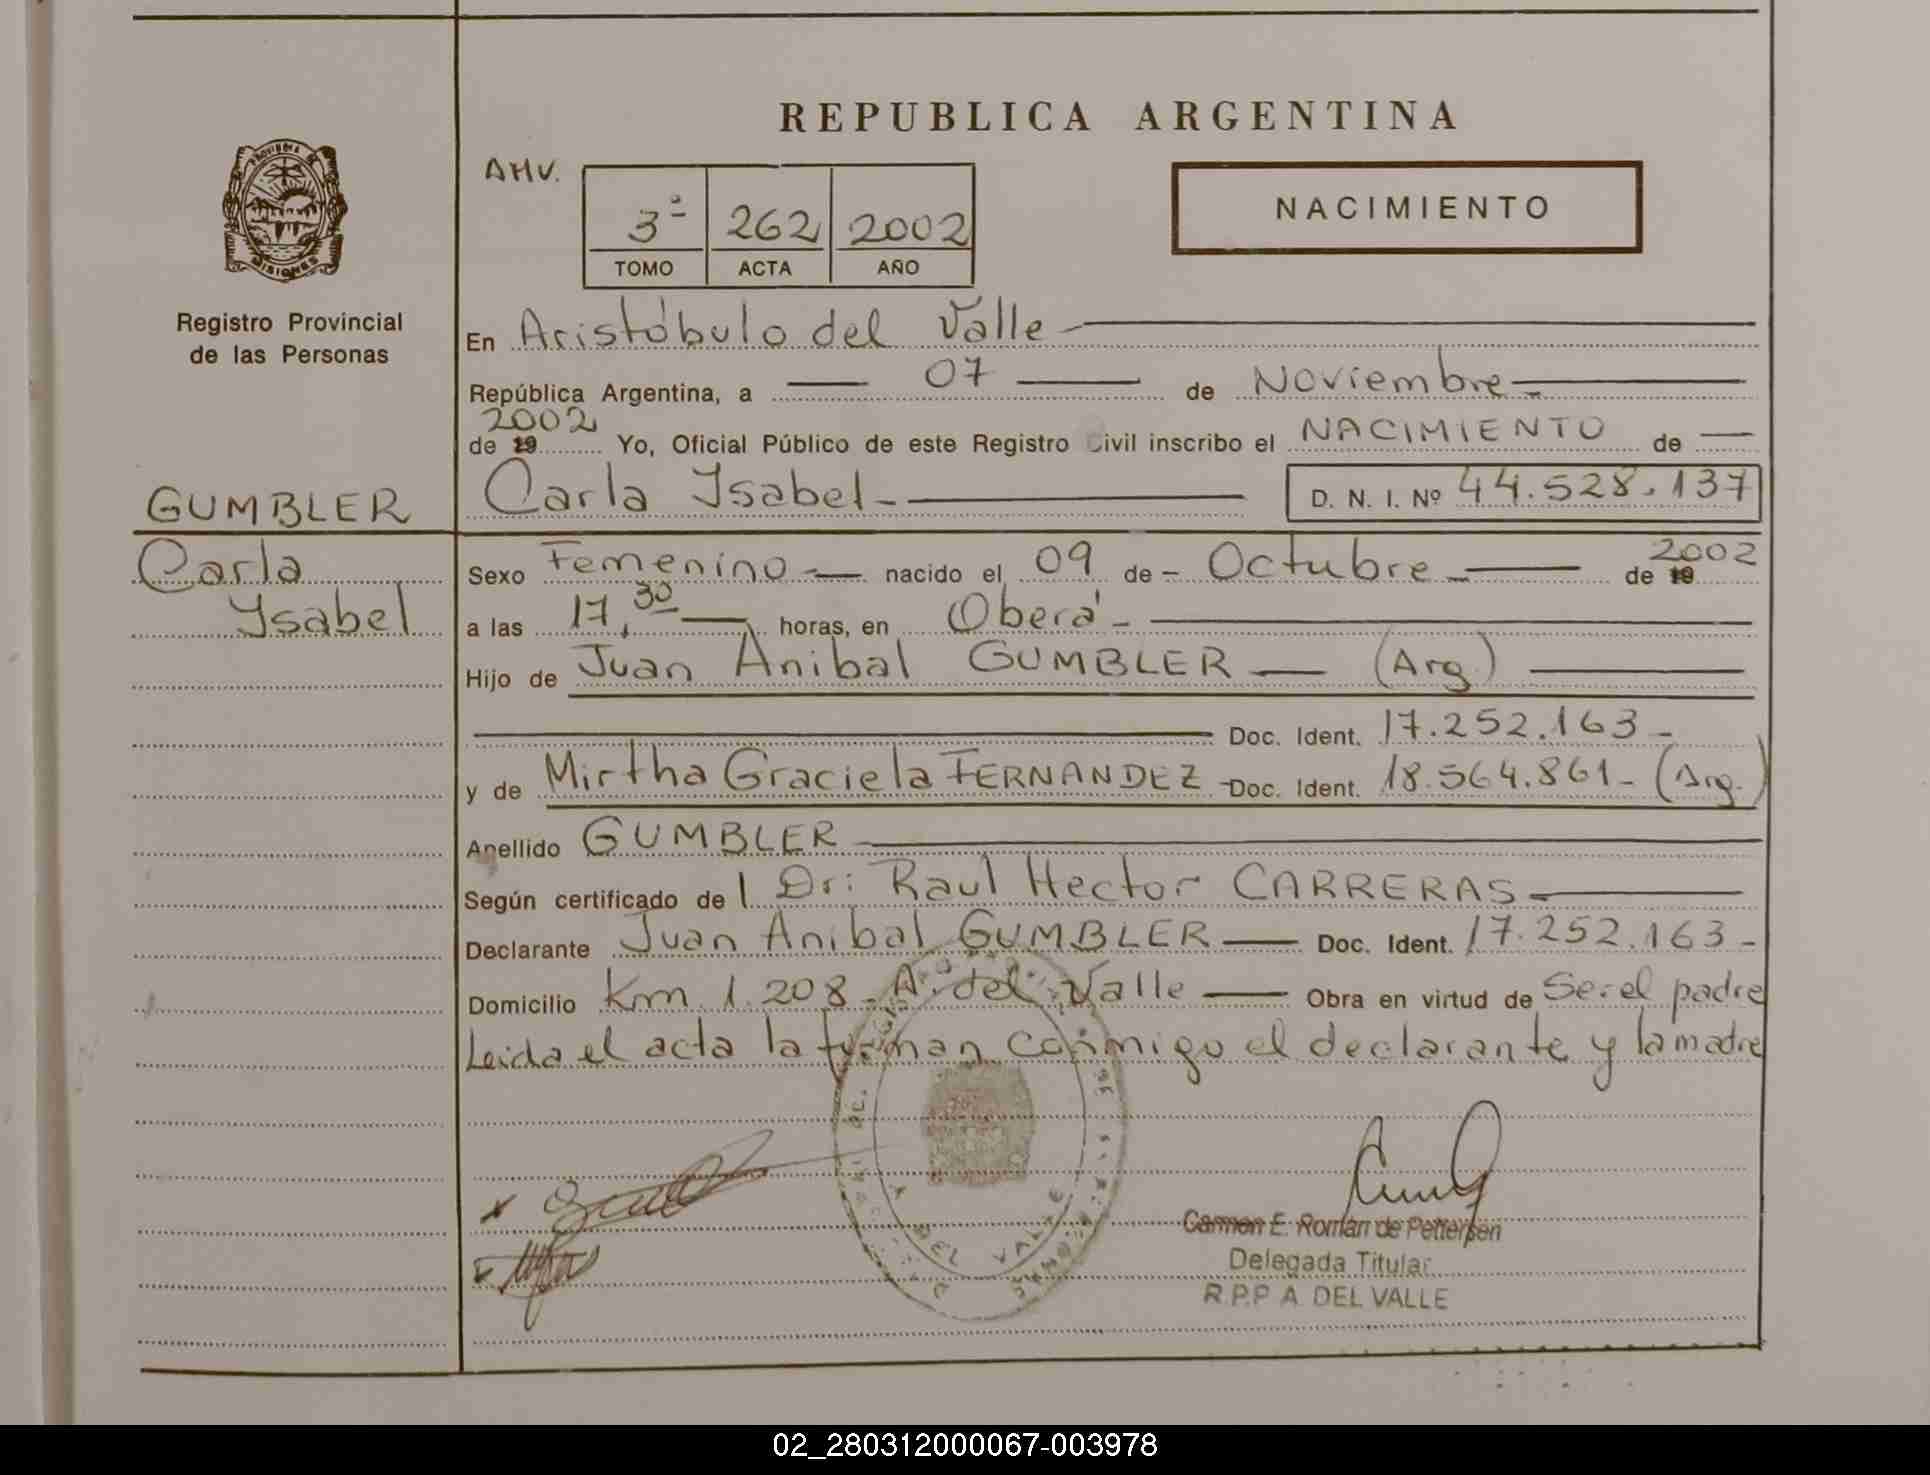 REPUBLICA ARGENTINA
PROVINCIA DE
MISIONES
Registro Provincial
de las Personas
AHV.
3º 262 2002
TOMO ACTA AÑO
NACIMIENTO
En Aristóbulo del Valle
República Argentina, a 07 de Noviembre
2002
de 19 Yo, Oficial Público de este Registro Civil inscribo el NACIMIENTO de
GUMBLER
Carla Ysabel
Carla Ysabel D. N. I. Nº 44.528.137
Sexo Femenino nacido el 09 de Octubre de 19 2002
a las 17,30 horas, en Oberá
Hijo de Juan Anibal GUMBLER (Arg.)
Doc. Ident. 17.252.163
y de Mirtha Graciela FERNANDEZ Doc. Ident. 18.564.861 (Arg.)
Apellido GUMBLER
Según certificado de l Dr: Raul Hector CARRERAS
Declarante Juan Anibal GUMBLER Doc. Ident. 17.252.163
Domicilio Km 1.208 A. del Valle Obra en virtud de Ser el padre
Leida el acta la firman conmigo el declarante y la madre
A DEL VALLE
Carmen E. Román de Pettersen
Delegada Titular
R.P.P A. DEL VALLE
02_280312000067-003978